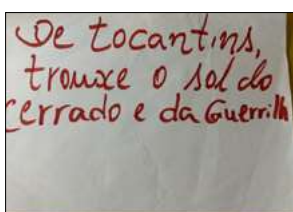 De tocantins,
trouxe o sol do
cerrado e da Guerrilh